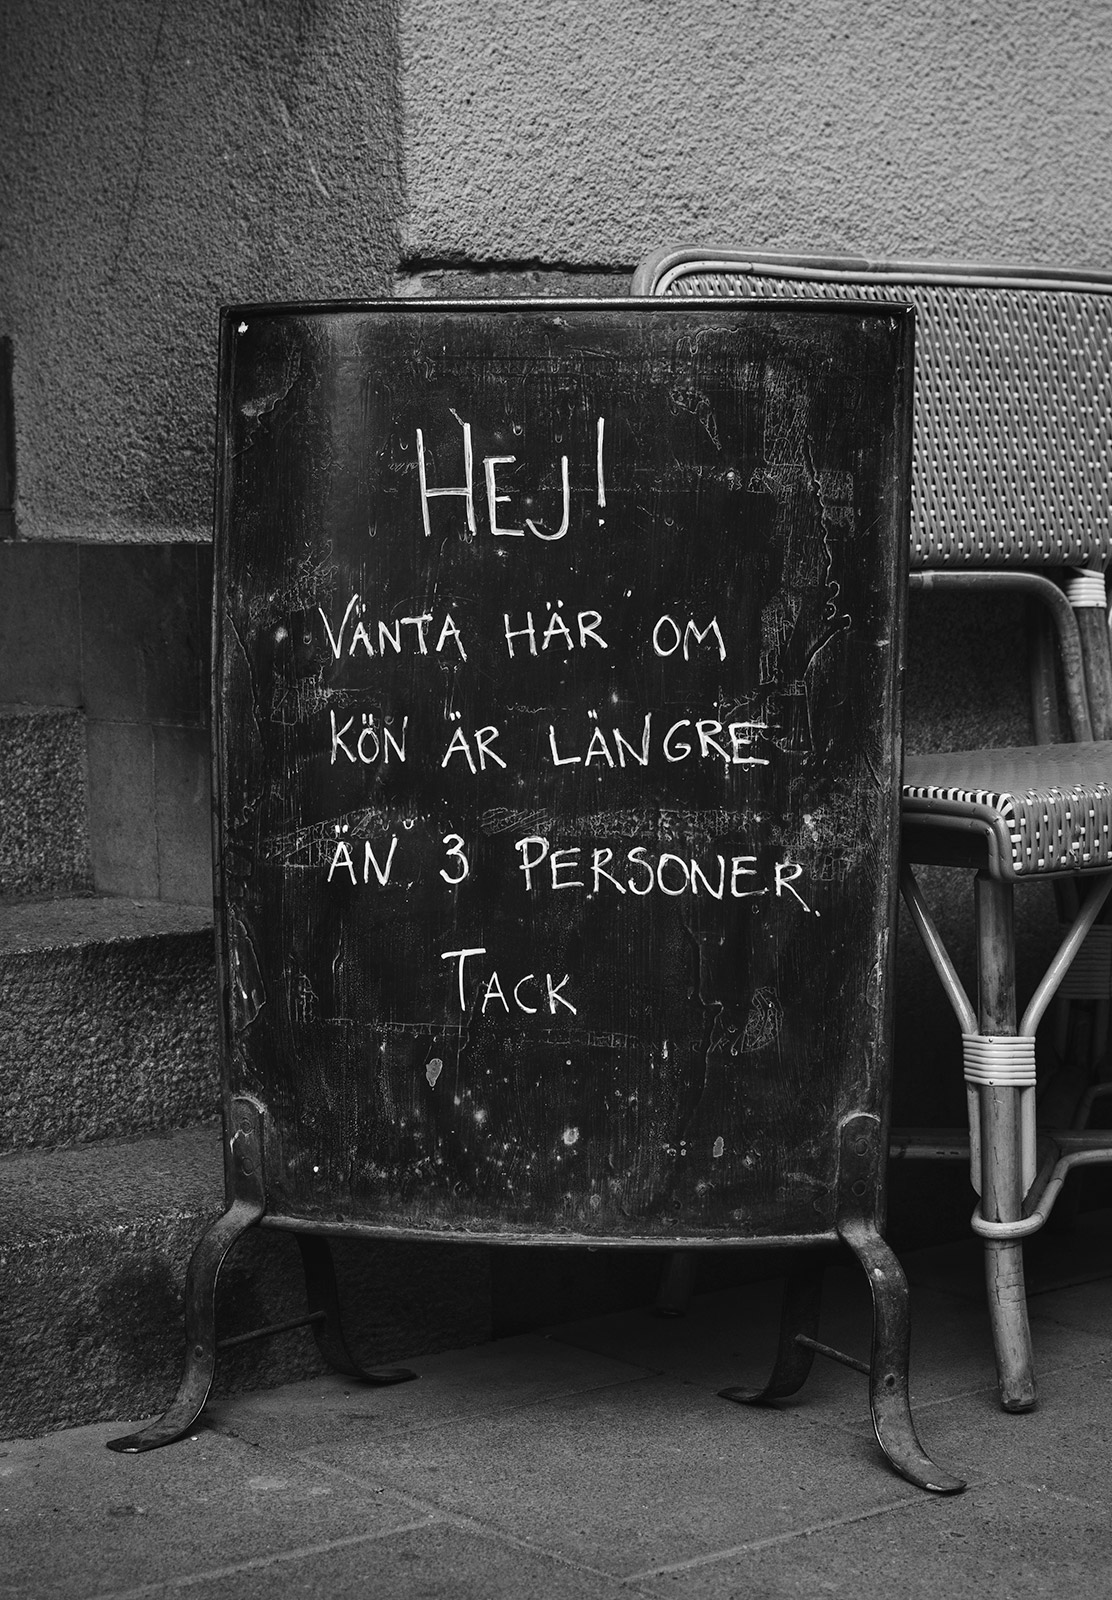 HEJ!
VÄNTA HÄR OM
KÖN ÄR LÄNGRE
ÄN 3 PERSONER.
TACK